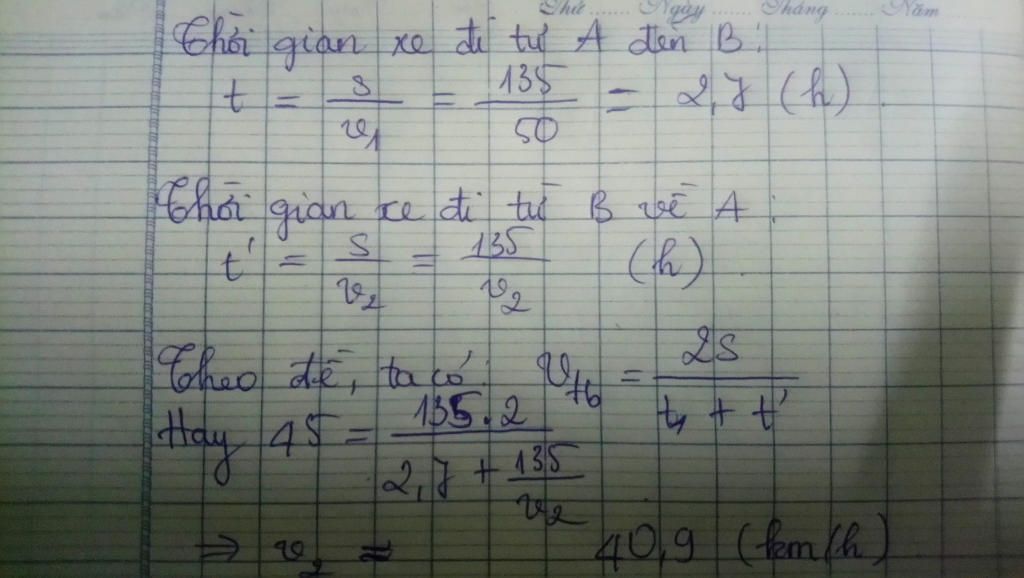 Thứ ........ Ngày ........ Tháng ........ Năm ........
Thời gian xe đi từ A đến B:
t = s/v₁ = 135/50 = 2,7 (h).
Thời gian xe đi từ B về A:
t' = s/v₂ = 135/v₂ (h)
Theo đề, ta có: v_tb = 2s/(t₁ + t')
Hay 45 = 135.2/(2,7 + 135/v₂)
⇒ v₂ ≈ 40,9 (km/h)